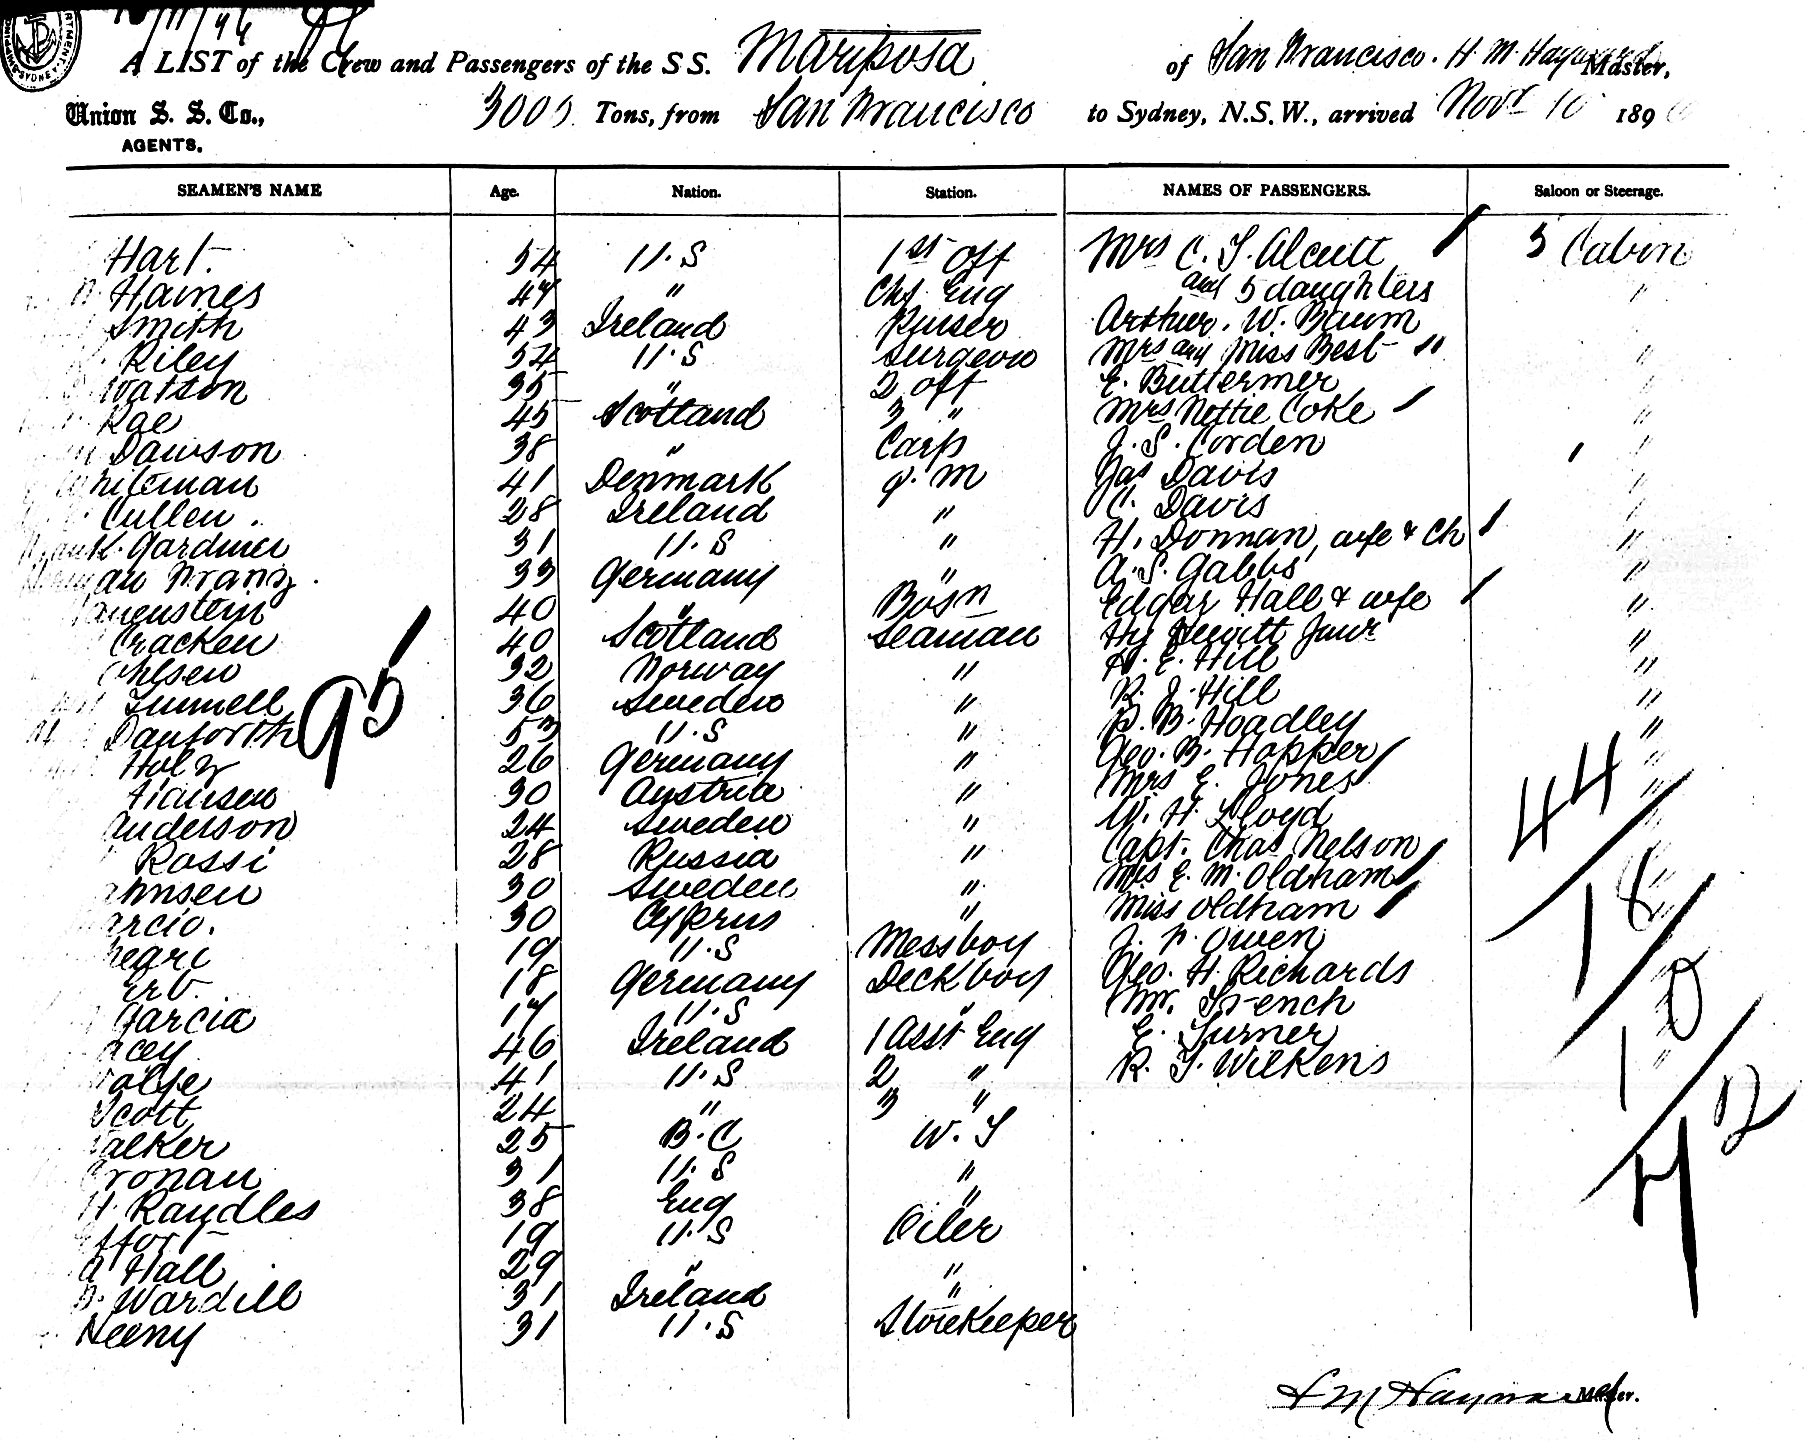 16/11/96
A LIST of the Crew and Passengers of the S S. Mariposa of San Francisco. H M Hayward Master,
Union S. S. Co., 3000 Tons, from San Francisco to Sydney, N.S.W., arrived Novr 10 1896
AGENTS.
SEAMEN'S NAME Age. Nation. Station. NAMES OF PASSENGERS. Saloon or Steerage.
Hart. 54 U.S 1st Off Mrs C. T. Alcutt 5 Cabin
Haines 47 " Chf. Eng and 5 daughters "
Smith 43 Ireland Purser Arthur. W. Baum
Riley 54 U.S Surgeon Mrs and Miss Best "
Watson 35 " 2 off E. Buttermer "
Rae 45 Scotland 3 " Mrs Nottie Coke "
Dawson 38 " Carp J. S. Corden "
Whiteman 41 Denmark q. m Jas Davis "
Cullen. 28 Ireland " C. Davis "
Frank. Gardner 31 U.S " H. Donnan, wife & Ch "
Herman Franz. 33 Germany " A. S. Gabbs "
40 " Bosn Edgar Hall & wife "
Cracken 40 Scotland Seaman Hy Hewitt Junr "
Ohlsen 32 Norway " H. E. Hill "
Tunnell 36 Sweden " R. J. Hill "
Danforth 53 U.S " P. B. Hoadley "
95
Holz 26 Germany " Geo. B. Hopper "
Hansen 30 Austria " Mrs E. Jones "
Anderson 24 Sweden " W. H. Lloyd "
44
Rossi 28 Russia " Capt. Chas Nelson "
ahnsen 30 Sweden " Mrs E. M. Oldham "
arcio. 30 Cyprus " Miss Oldham "
18
19 U.S Messboy J. F. Owen "
Erb. 18 Germany Deck boy Geo. H. Richards "
Garcia 17 U.S " Mr. Trench "
10
acey 46 Ireland 1 Asst Eng E. Turner "
41 U.S 2 " R. T. Wilkens "
Scott 24 " 3 "
72
alker 25 B.C W. T
Cronan 31 U.S "
H. Randles 38 Eng "
19 U.S Oiler
A Hall 29 " "
D. Wardill 31 Ireland "
Heeny 31 U.S Storekeeper
H M Hayward Master.